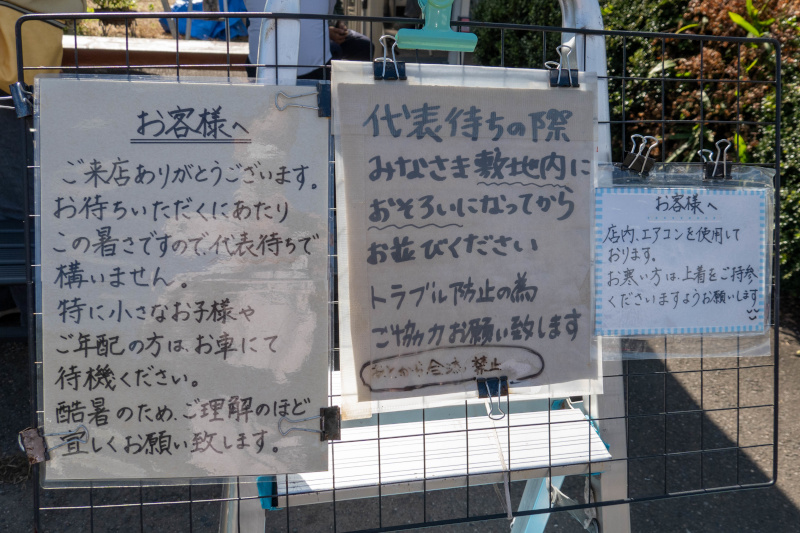 お客様へ
ご来店ありがとうございます。
お待ちいただくにあたり
この暑さですので、代表待ちで
構いません。
特に小さなお子様や
ご年配の方は、お車にて
待機ください。
酷暑のため、ご理解のほど
宜しくお願い致します。
代表待ちの際
みなさま敷地内に
おそろいになってから
お並びください
トラブル防止の為
ご協力お願い致します
あとから合流 禁止
お客様へ
店内、エアコンを使用して
おります。
お寒い方は、上着をご持参
くださいますようお願いします